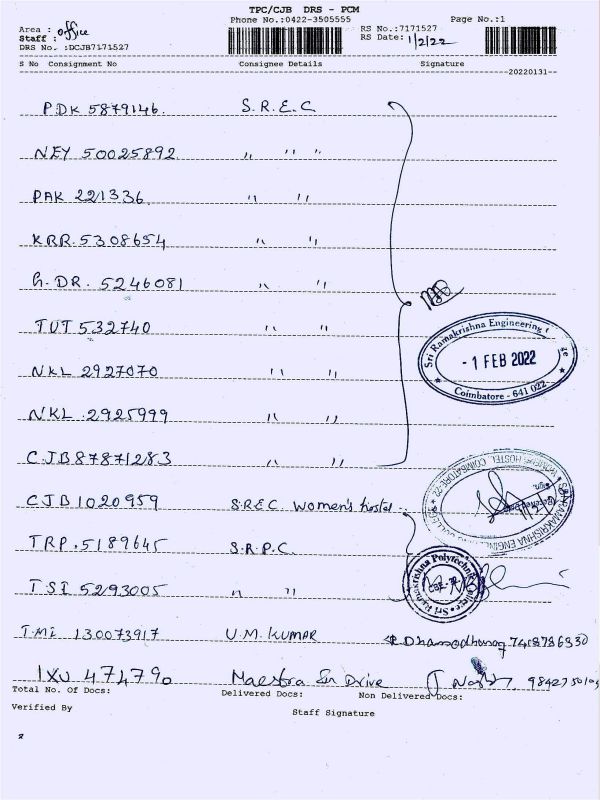 TPC/CJB DRS - PCM
Phone No.:0422-3505555
Page No.:1
Area : office
RS No.:7171527
Staff :
RS Date: 1/2/22
DRS No. :DCJB7171527
S No Consignment No Consignee Details Signature
20220131
PDK 5879146 S.R.E.C
NEY 50025892 " " "
PAK 221336 " "
KRR 5308654 " "
G.DR. 5246081 " "
TUT 532740 " "
NKL 2927070 " "
NKL 2925999 " "
CJB 87871283 " "
Sri Ramakrishna Engineering
- 1 FEB 2022
Coimbatore - 641 022
CJB 1020959 S.R.E.C. Women's hostel
TRP. 5189645 S.R.P.C.
TSI 5293005 " "
Sri Ramakrishna Polytechnic College
TMI 130073917 U.M. KUMAR 7418786330
IXU 474790 Maestra Drive
Total No. Of Docs: Delivered Docs: Non Delivered Docs:
Verified By
Staff Signature